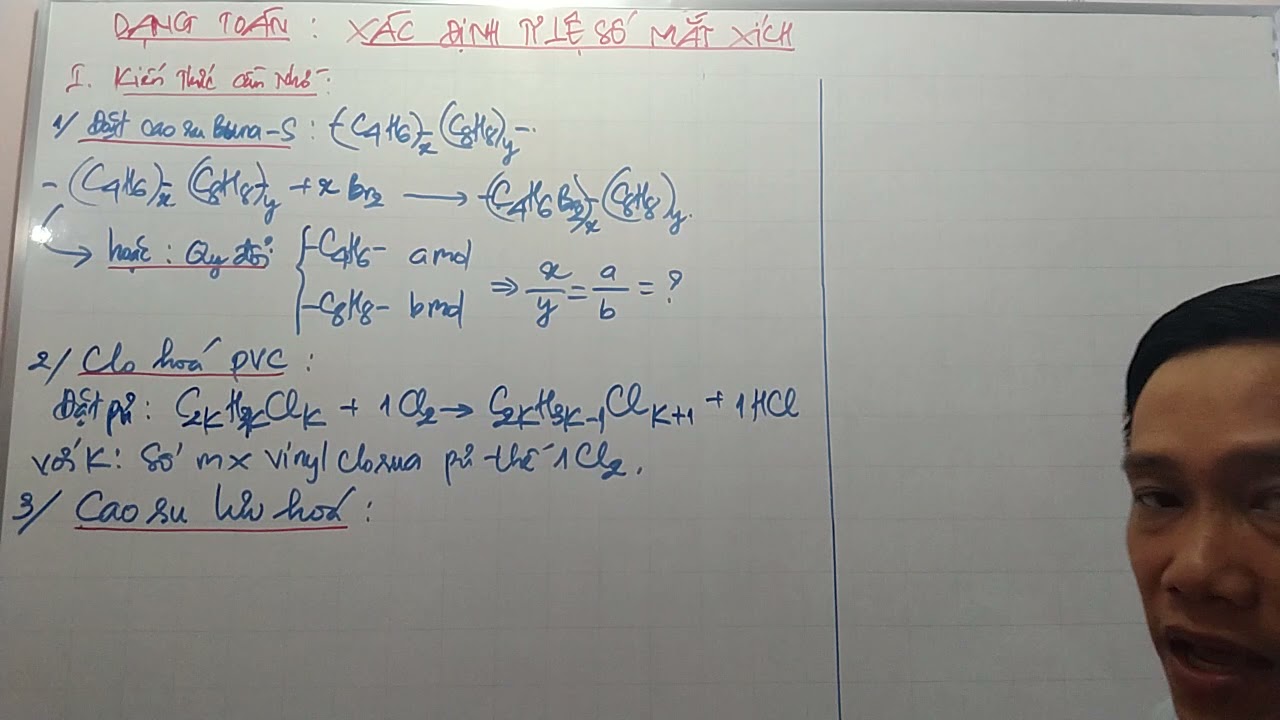 DẠNG TOÁN : XÁC ĐỊNH TỈ LỆ SỐ MẮT XÍCH
I. Kiến thức cần nhớ :
1/ Đặt cao su Buna-S : -(C4H6)x-(C8H8)y-.
-(C4H6)x-(C8H8)-y + x Br2 → -(C4H6Br2)x-(C8H8)y.
hoặc : Quy đổi { -C4H6- a mol
-C8H8- b mol ⇒ x/y = a/b = ?
2/ Clo hoá PVC :
Đặt pứ : C2KH3KClK + 1Cl2 → C2KH3K-1ClK+1 + 1HCl
với K : Số mx vinyl clorua pứ thế 1Cl2.
3/ Cao su lưu hoá :